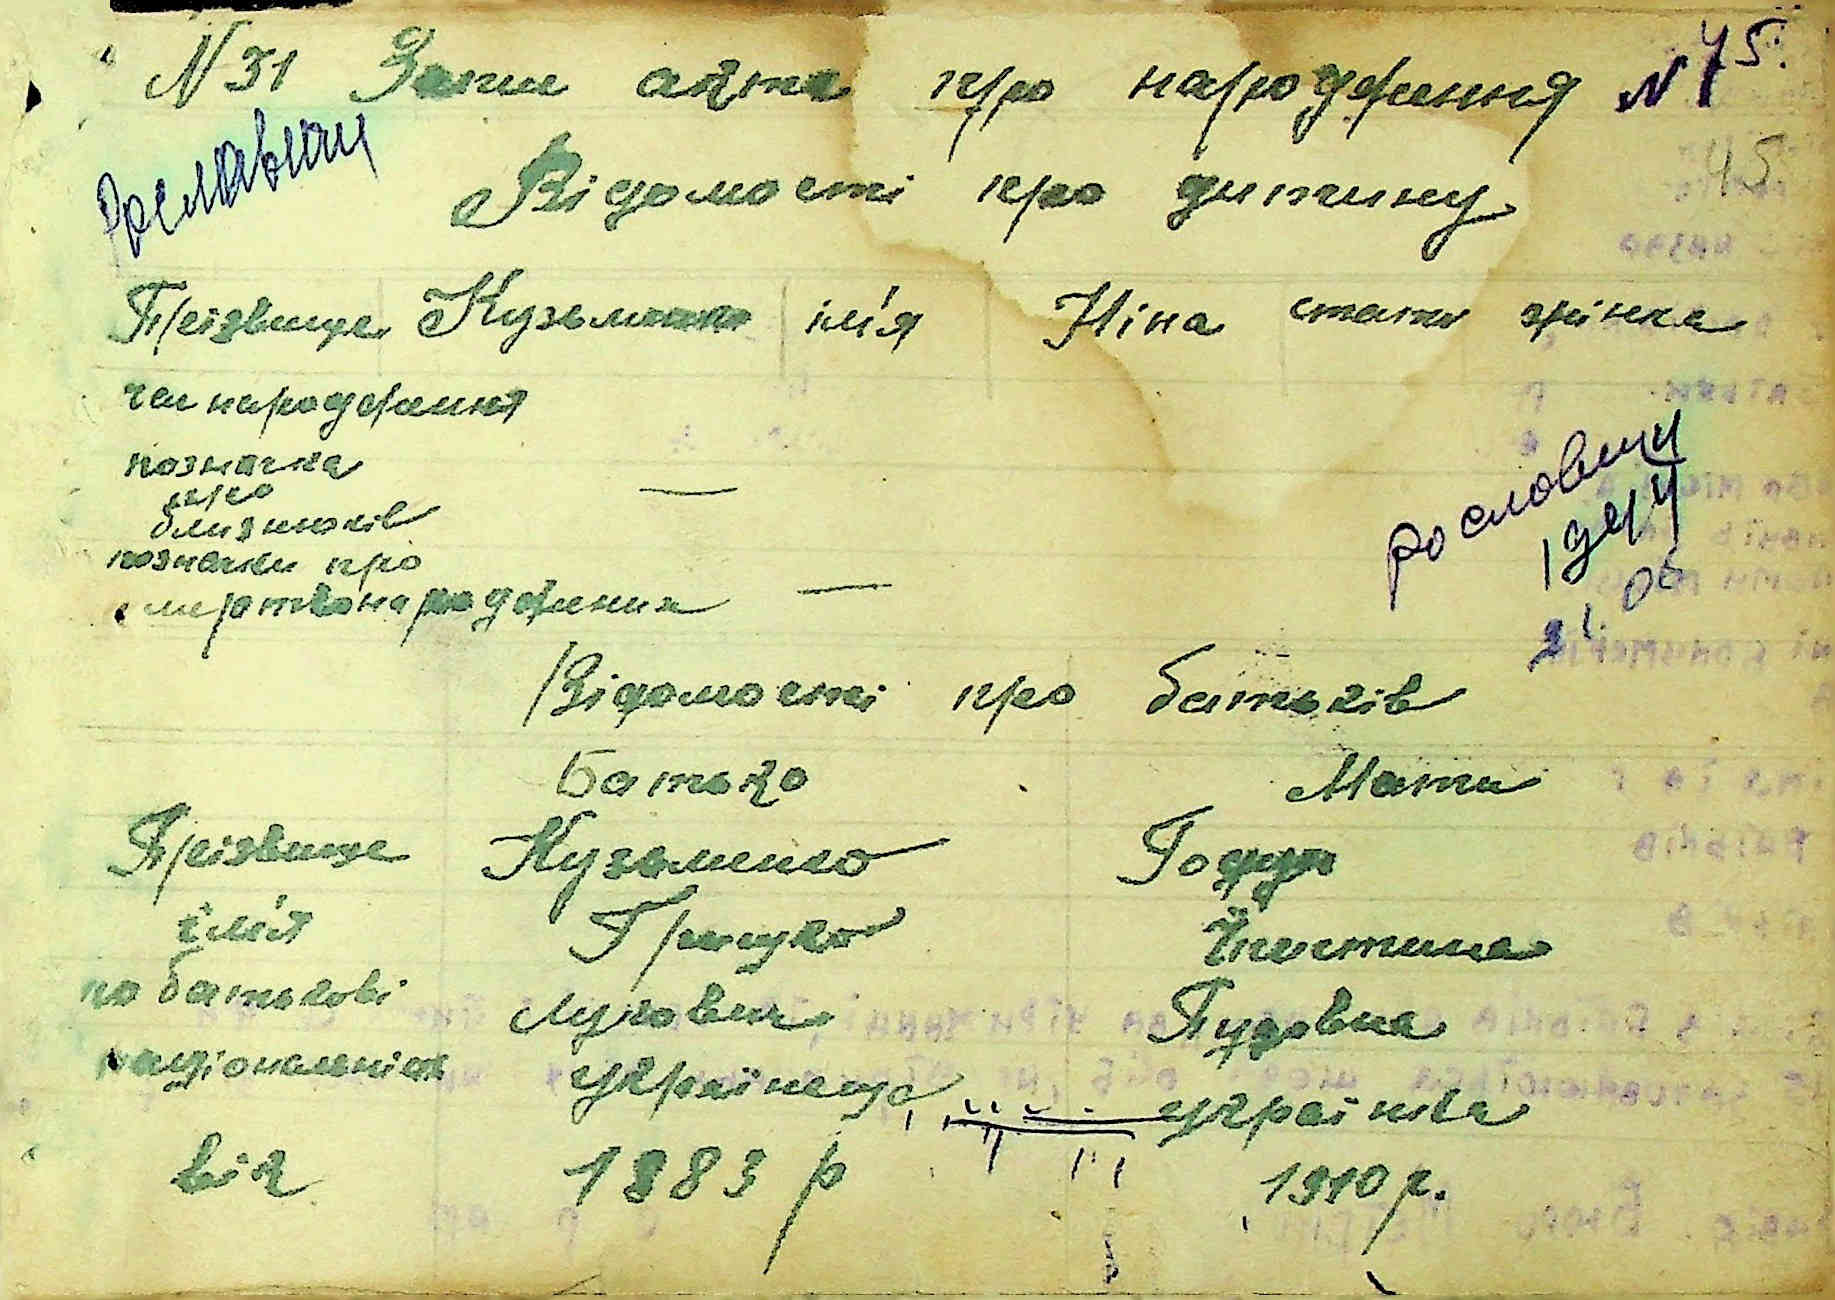 N 31 Запис акта про народження N 45.
Рославичи
45
Відомості про дитину
Прізвище Кузьменко ім'я Ніна стать жінка
час народження
позначка
про
близнюків —
позначки про
мертвонародження —
Рославичи
21. 06
Відомості про батьків
Батько Мати
Прізвище Кузьменко Годун
ім'я Грицько Юстина
по батькові Лукович Пудовна
національніст українець українка
вік 1883 р 1910 р.